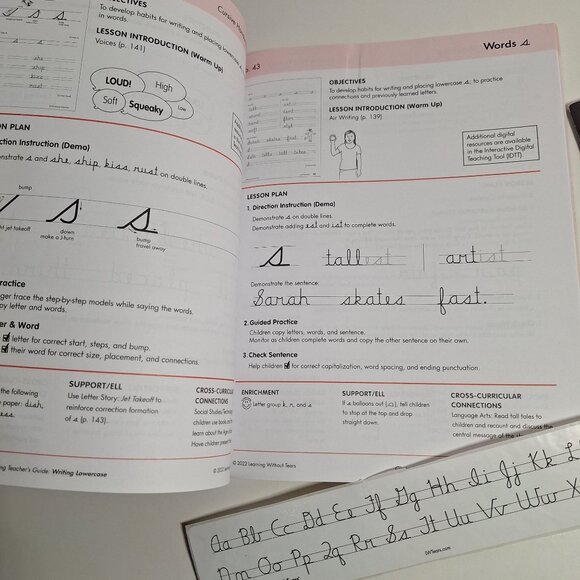 Cursive
To develop habits for writing and placing lowercase
in words.
LESSON INTRODUCTION (Warm Up)
Voices (p. 141)
LOUD!
High
Soft
Squeaky
Low
PLAN
Instruction (Demo)
s and she, ship, kiss, rust on double lines.
bump
jet takeoff
down
make a J-turn
bump
travel away
trace the step-by-step models while saying the words.
letter and words.
& Word
letter for correct start, steps, and bump.
their word for correct size, placement, and connections.
the following
paper: dish,
SUPPORT/ELL
Use Letter Story: Jet Takeoff to
reinforce correction formation
of s (p. 143).
CROSS-CURRICULAR
CONNECTIONS
Social Studies/
children use books
learn about the
Have children
Teacher's Guide: Writing Lowercase
© 2022
p. 43
Words s
OBJECTIVES
To develop habits for writing and placing lowercase s; to practice
connections and previously learned letters.
LESSON INTRODUCTION (Warm Up)
Air Writing (p. 139)
Additional digital
resources are available
in the Interactive Digital
Teaching Tool (IDTT).
LESSON PLAN
1. Direction Instruction (Demo)
Demonstrate s on double lines.
Demonstrate adding est and ist to complete words.
s tallest artist
Demonstrate the sentence:
Sarah skates fast.
2. Guided Practice
Children copy letters, words, and sentence.
Monitor as children complete words and copy the other sentence on their own.
3. Check Sentence
Help children for correct capitalization, word spacing, and ending punctuation.
ENRICHMENT
Letter group k, r, and s
SUPPORT/ELL
If s balloons out (s), tell children
to stop at the top and drop
straight down.
CROSS-CURRICULAR
CONNECTIONS
Language Arts: Read tall tales to
children and recount and discuss the
central message of the
© 2022 Learning Without Tears
Aa Bb Cc Dd Ee Ff Gg Hh Ii Jj Kk L
Nn Oo Pp Qq Rr Ss Tt Uu Vv Ww X
LWTears.com